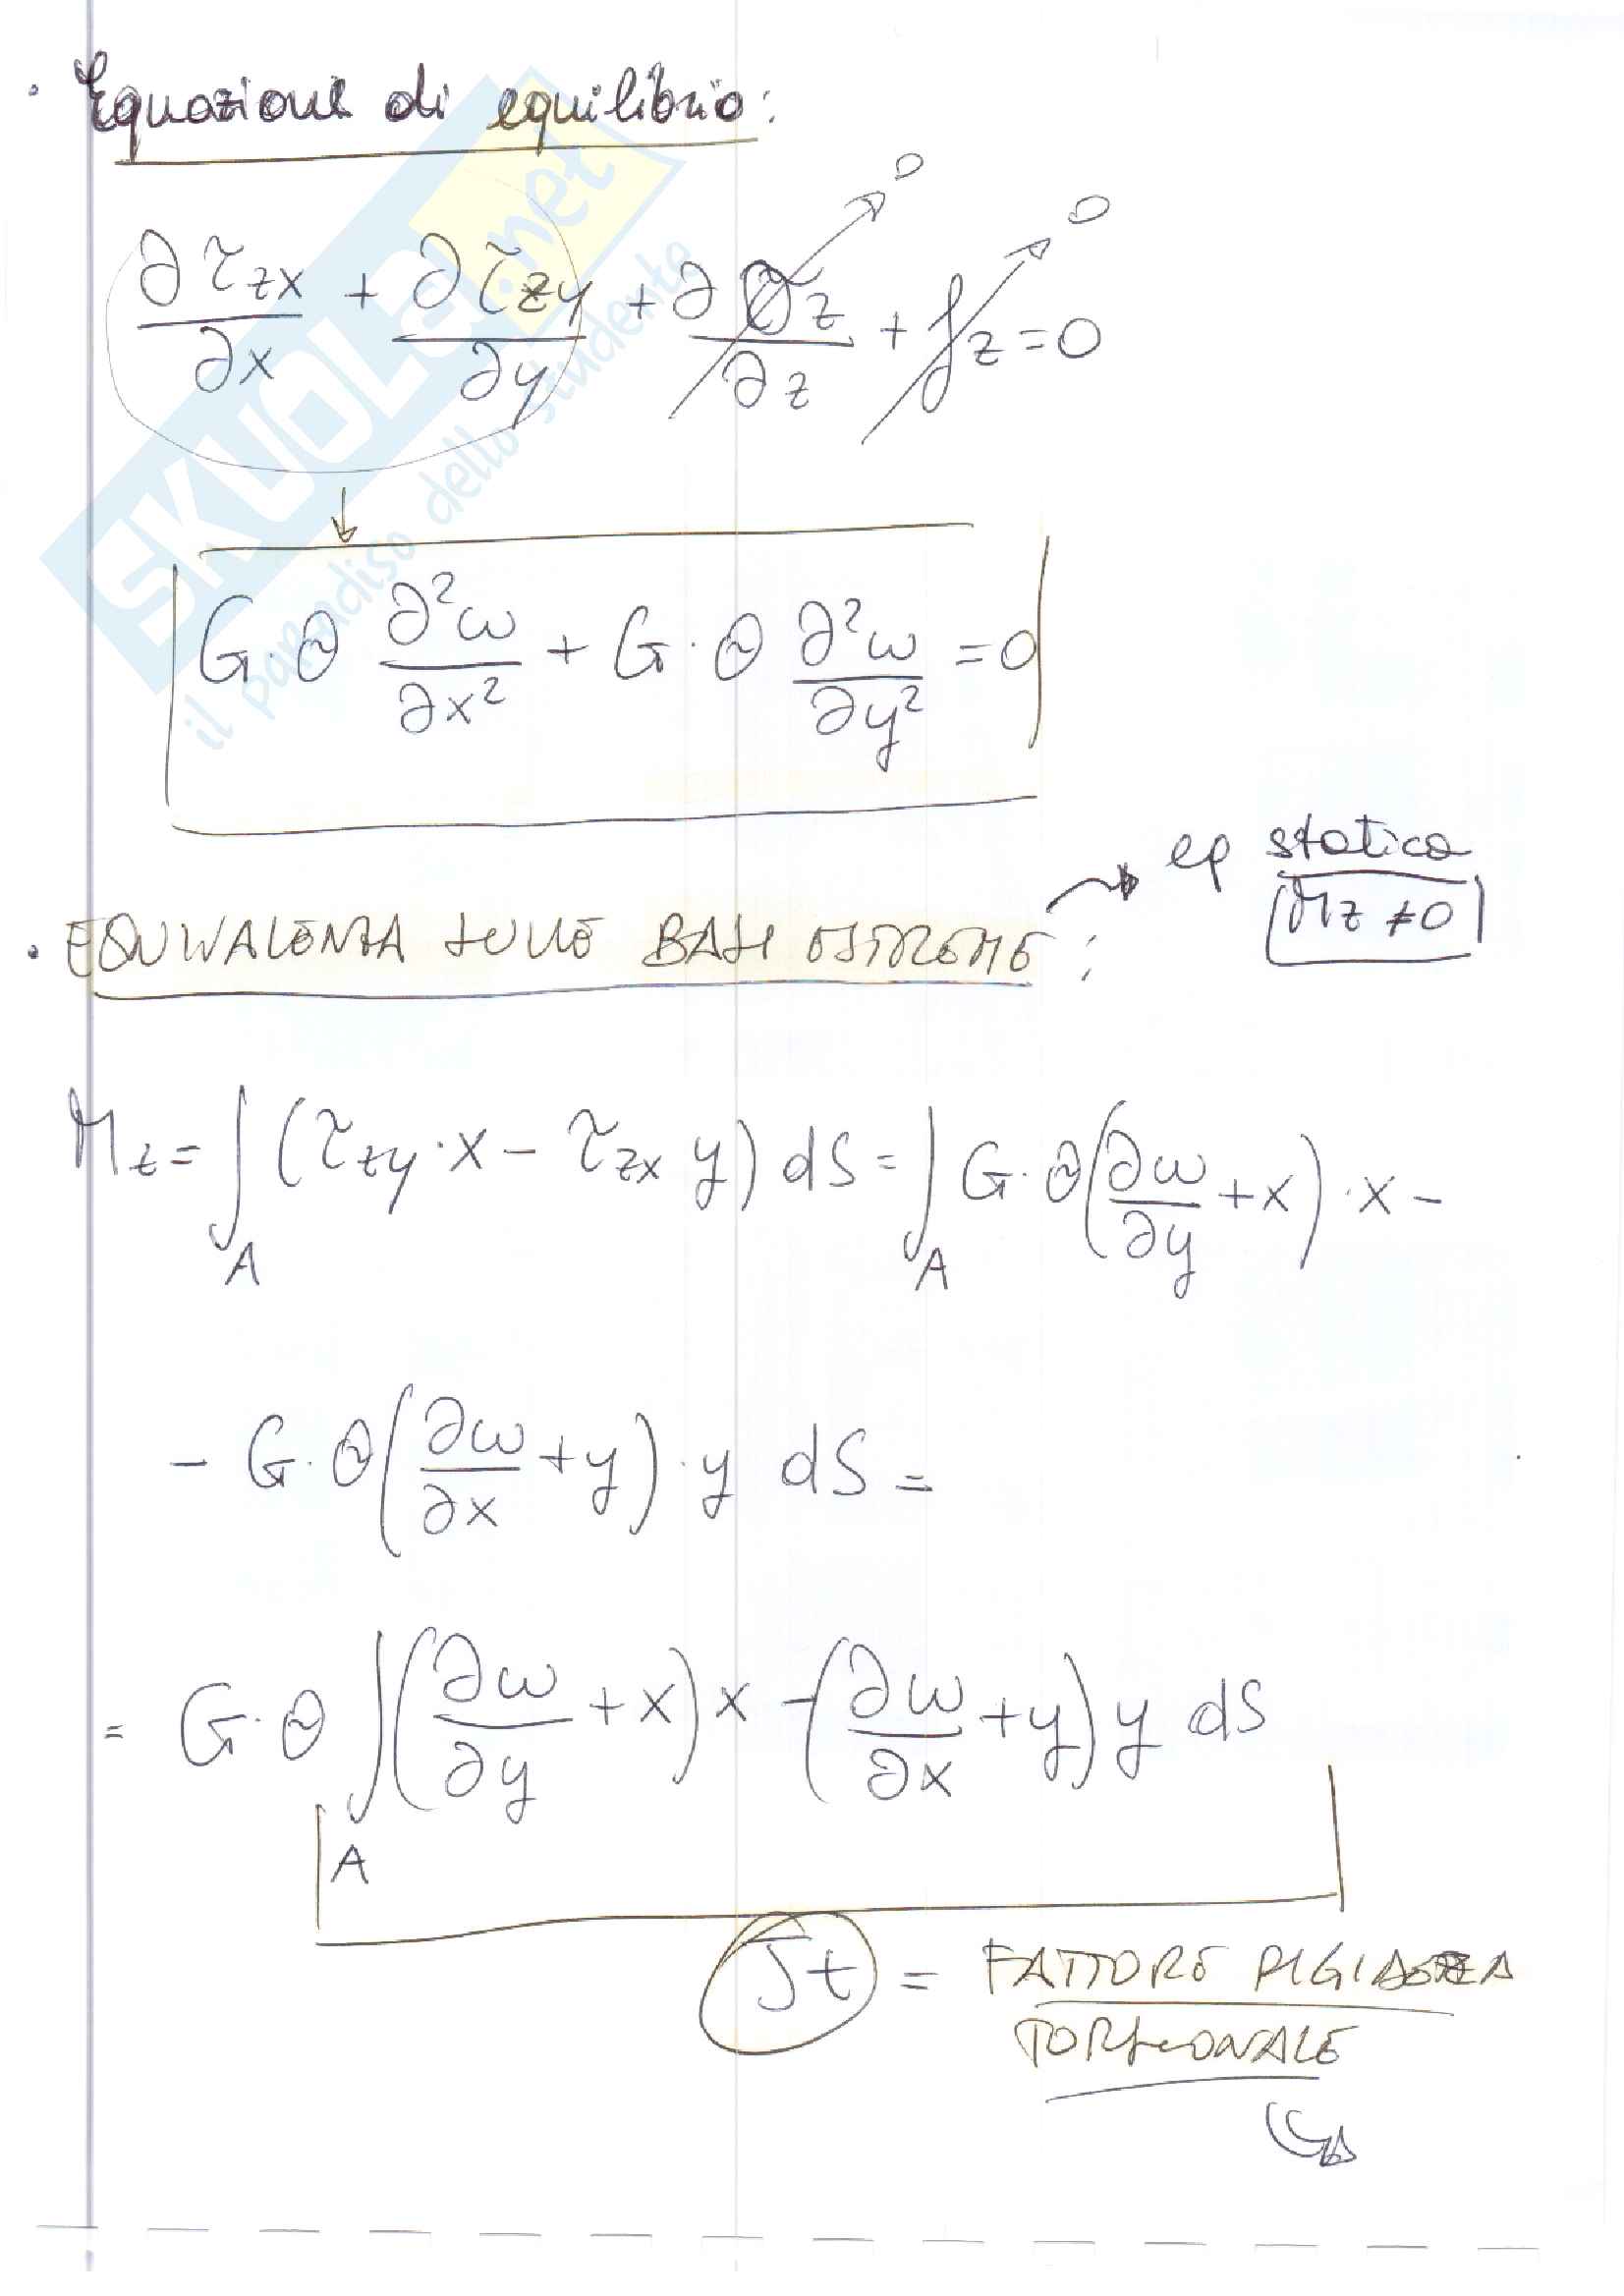 · Equazione di equilibrio:
SKUOLA.net
il paradiso dello studente
∂τzx/∂x + ∂τzy/∂y + ∂σz/∂z → 0 + fz → 0 = 0
↓
G·θ ∂²ω/∂x² + G·θ ∂²ω/∂y² = 0
· EQUIVALENZA SULLE BASI ESTREME: → eq statica
Mz ≠ 0
Mz = ∫A (τzy·x − τzx y) dS = ∫A G·θ(∂ω/∂y + x)·x −
− G·θ(∂ω/∂x + y)·y dS =
= G·θ ∫A (∂ω/∂y + x)x − (∂ω/∂x + y)y dS
Jt = FATTORE RIGIDEZZA
TORSIONALE